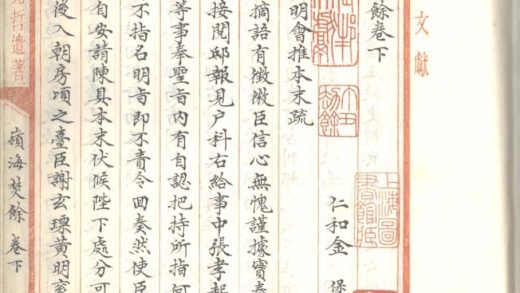 文獻
餘卷下
上海圖書館藏
仁和金 堡
明會推本末疏
摘語有徵微臣信心無愧謹據實奏
接閱邸報見户科右給事中張孝起
等事奉聖旨內有自認把持所指何
不指名明旨即不責令回奏然使臣
自安請陳具本末伏候陛下處分可
後入朝房項之臺臣謝玄瑮黃明
哲遺著
嶺海焚餘 卷下